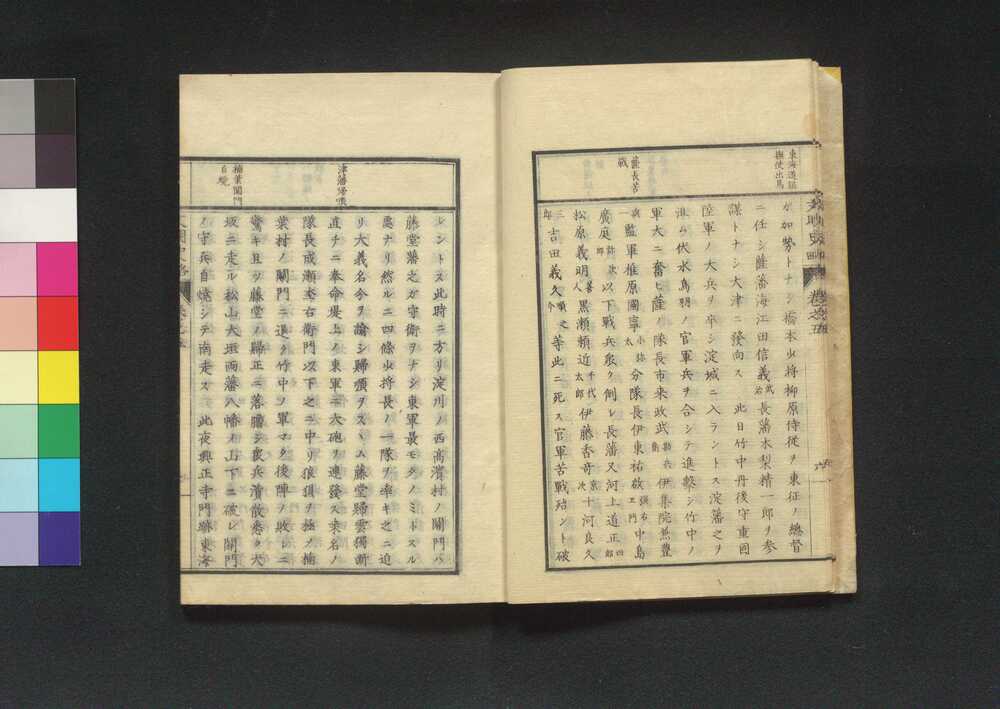 東海道鎮
撫使出馬
薩長苦
戰
ガ加勢トナシ橋本少將柳原侍從ヲ東征ノ總督
ニ任シ薩藩海江田信義武治長藩木梨精一郎ヲ參
謀トナシ大津ニ發向ス 此日竹中丹後守重固
陸軍ノ大兵ヲ卒シ淀城ニ入ラントス淀藩之ヲ
淮ム伏水鳥羽ノ官軍兵ヲ合シテ進擊シ竹中ノ
軍大ニ奮ヒ薩ノ隊長市来政武勘兵衛伊集院兼豊
監軍椎原國寧小弥太分隊長伊東祐啟中島
廣庭以下戰兵衆ク倒レ長藩又河上道正四郎
松原義明人黒瀬頼近千代太郎伊藤香竒京次十河良久
三郎吉田義久之今等此ニ死ス官軍苦戰殆ント破
津藩歸順
楠葉關門
自燒
レントス此時ニ方リ淀川ノ西髙濱村ノ關門ハ
藤堂藩之ガ守衛ヲナシ東軍最モタノミトスル
處ナリ然ルニ四條少将長ノ一隊ヲ率キ之ニ迫
リ大義名分ヲ諭シ歸順ヲスヽム藤堂歸雲獨斷
直チニ奉命堤上ノ東軍ニ大砲ヲ連發ス桒名ノ
隊長成瀬杢右衛門以下之ニ中リ狼狽ヲ極メ楠
葉村ノ關門ニ退ク竹中ノ軍マタ後陣ヲ敗ルニ
驚キ且ツ藤堂ノ歸正ニ落膽シ衆兵潰散悉ク大
坂ニ走ル松山大垣西藩八幡ノ山下ニ破レ關門
ノ守兵自燒シテ南走ス 此夜興正寺門跡東海